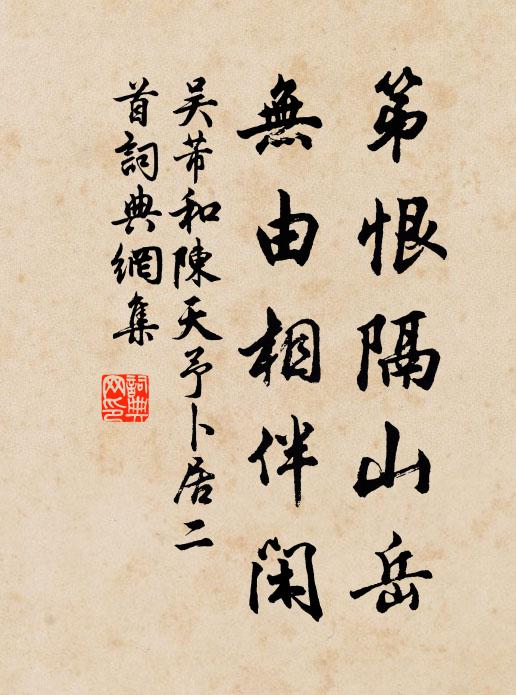 第恨隔山岳
無由相伴閑
吳芾和陳天予卜居二
首詞典網集
詞典网印